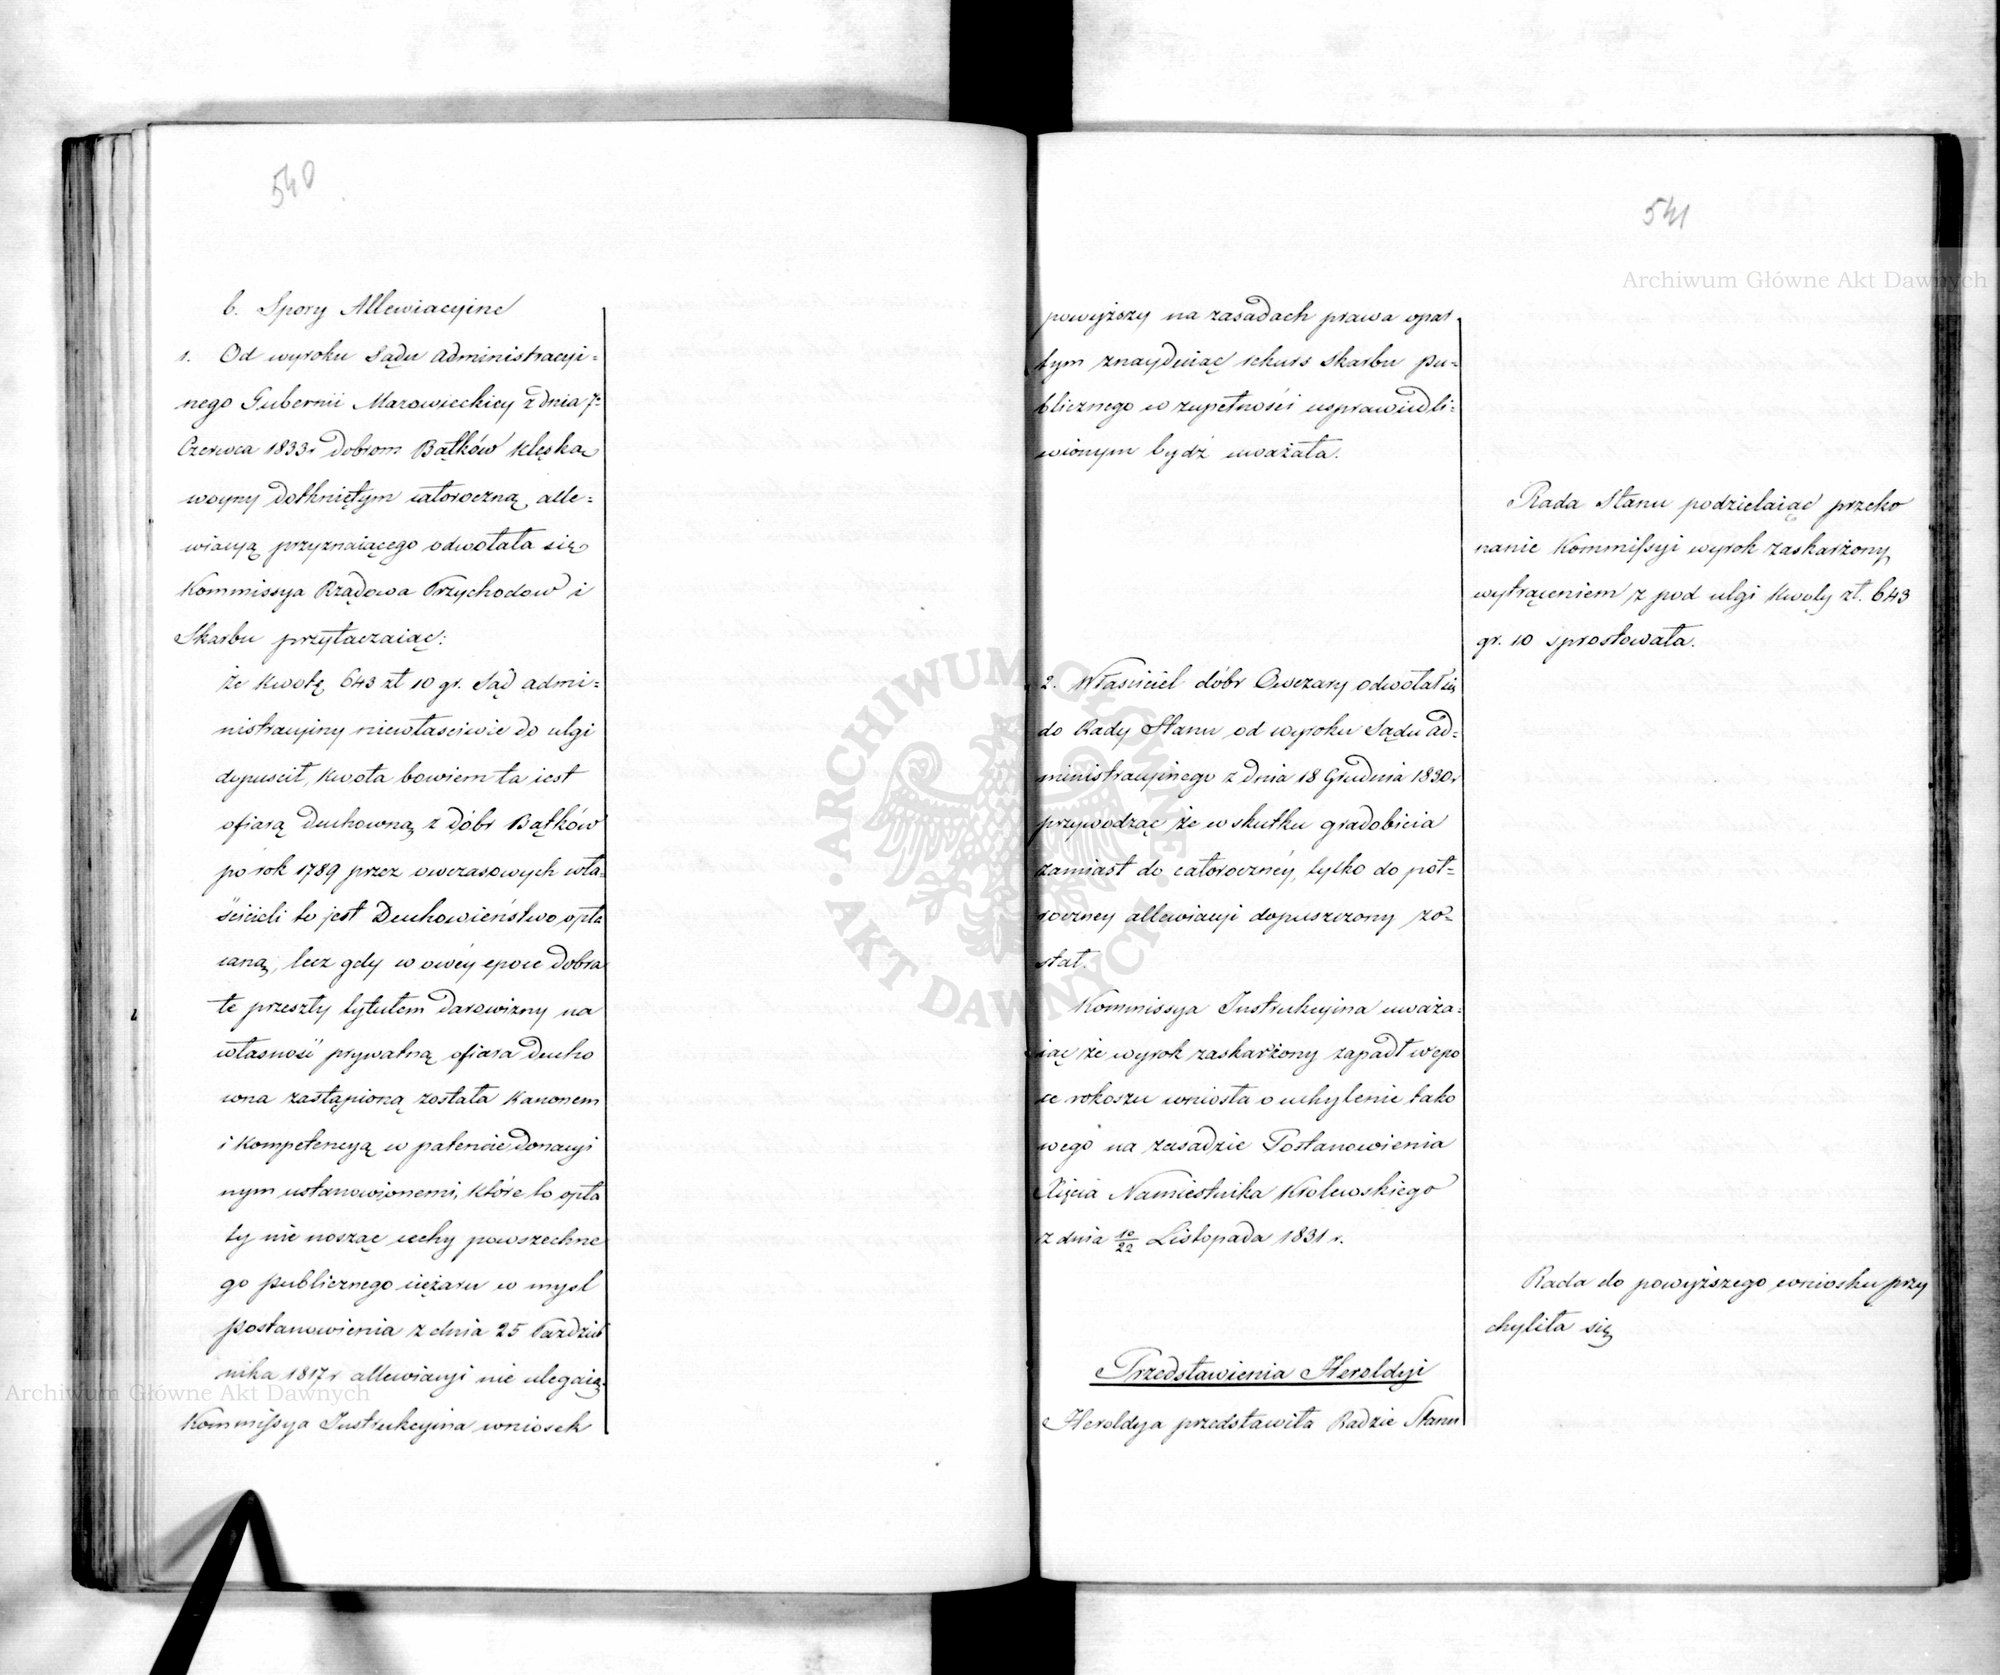 540
b. Spory Allewiacyine
1. Od wyroku Sądu Administracyi=
nego Gubernii Mazowieckiey z dnia 7=
Czerwca 1833r dobrom Bąłków klęską
woyny dotkniętym całoroczną alle=
wiacyą przyznaiącego odwołała się
Kommissya Rządowa Przychodow i
Skarbu przytaczaiąc:
że kwotę 643 zł 10 gr. Sąd admi=
nistracyiny niewłasciwie do ulgi
dopuscił, kwota bowiem ta iest
ofiarą duchowną z dóbr Bąłków
po rok 1789 przez owczasowych wła=
ścicieli to jest Duchowieństwo opła
caną, lecz gdy w owéy epoce dobra
te przeszły tytułem darowizny na
własność prywatną ofiara ducho
wna zastąpioną została kanonem
i kompetencyą w patencie donacyi
nym ustanowionemi, które to opła
ty nie nosząc cechy powszechne
go publicznego ciężaru w mysl
postanowienia z dnia 25 Paździer
nika 1817r allewiacyi nie ulegaią.
Kommissya Instrukcyina wniosek
541
powyższy na zasadach prawa opar
tym znayduiąc rekurs skarbu pu=
blicznego w zupełności usprawiedli=
wionym bydź uważała.
Rada Stanu podzielaiąc przeko
nanie Kommissyi wyrok zaskarżony
wytrąceniem z pod ulgi kwoty zł. 643
gr. 10 sprostowała.
2. Właściciel dóbr Owczary odwołał się
do Rady Stanu od wyroku Sądu Ad=
ministracyinego z dnia 18 Grudnia 1830r
przywodząc że w skutku gradobicia
zamiast do całorocznéy, tylko do pół=
roczney allewiacyi dopuszczony zo=
stał.
Kommissya Instrukcyina uważa=
iąc że wyrok zaskarżony zapadł w epo
ce rokoszu wniosła o uchylenie tako
wego na zasadzie Postanowienia
Xięcia Namiestnika Krolewskiego
z dnia 10/22 Listopada 1831 r.
Rada do powyższego wniosku przy
chyliła się
Przedstawienia Heroldyi
Heroldya przedstawiła Radzie Stanu
Archiwum Główne Akt Dawnych
Archiwum Główne Akt Dawnych
ARCHIWUM GŁÓWNE AKT DAWNYCH